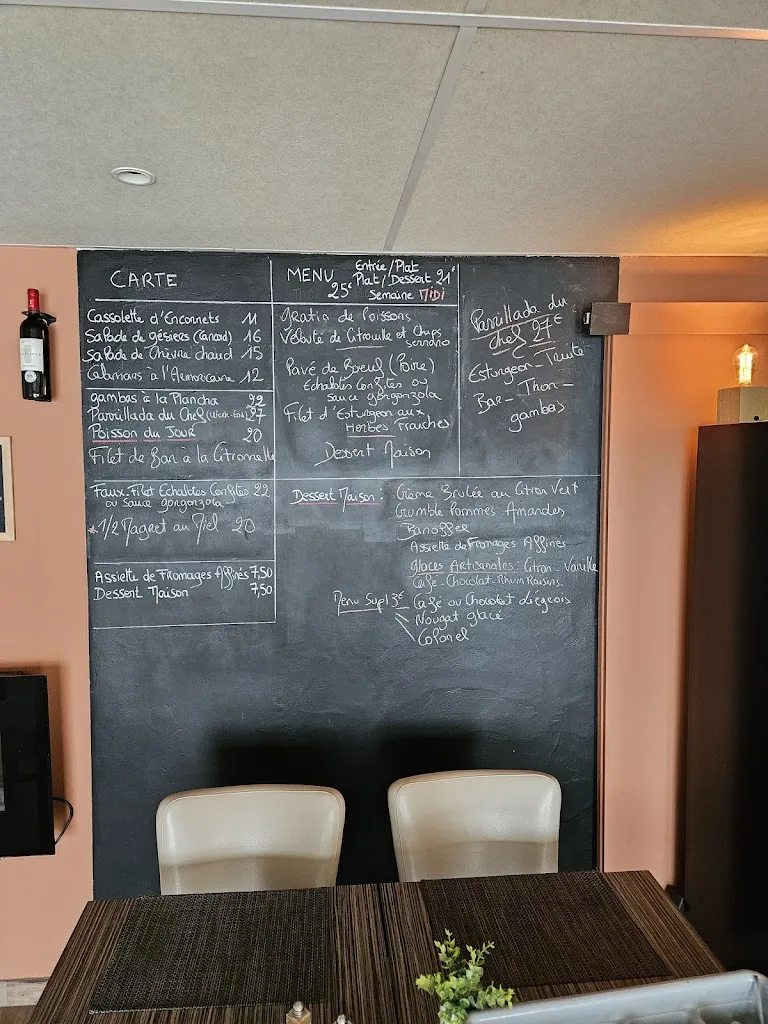 CARTE
Cassolette d'Encornets 11
Salade de gésiers (Canard) 16
Salade de Chèvre chaud 15
Calamars à l'Armoricaine 12
gambas à la Plancha 22
Parrillada du Chef (Week-End) 27
Poisson du Jour 20
Filet de Bar à la Citronnelle
Faux-Filet Echalotes Confites 22
ou Sauce gorgonzola
*1/2 Magret au Miel 20
Assiette de Fromages Affinés 7,50
Dessert Maison 7,50
MENU 25€
Entrée/Plat
Plat/Dessert 21€
Semaine MIDI
Gratin de Poissons
Velouté de Citrouille et Chips
Pavé de Boeuf (Poire)
Echalotes Confites ou
Sauce gorgonzola
Filet d'Esturgeon aux
Herbes Fraiches
Dessert Maison
Parrillada du
chef 27€
Esturgeon - Truite
Bar - Thon -
gambas
Dessert Maison : Crème Brulée au Citron Vert
Crumble Pommes Amandes
Banoffee
Assiette de Fromages Affinés
Glaces Artisanales : Citron - Vanille
Café - Chocolat - Rhum Raisins
Menu Supl 3€ Café ou Chocolat Liégeois
Nougat glacé
Colonel